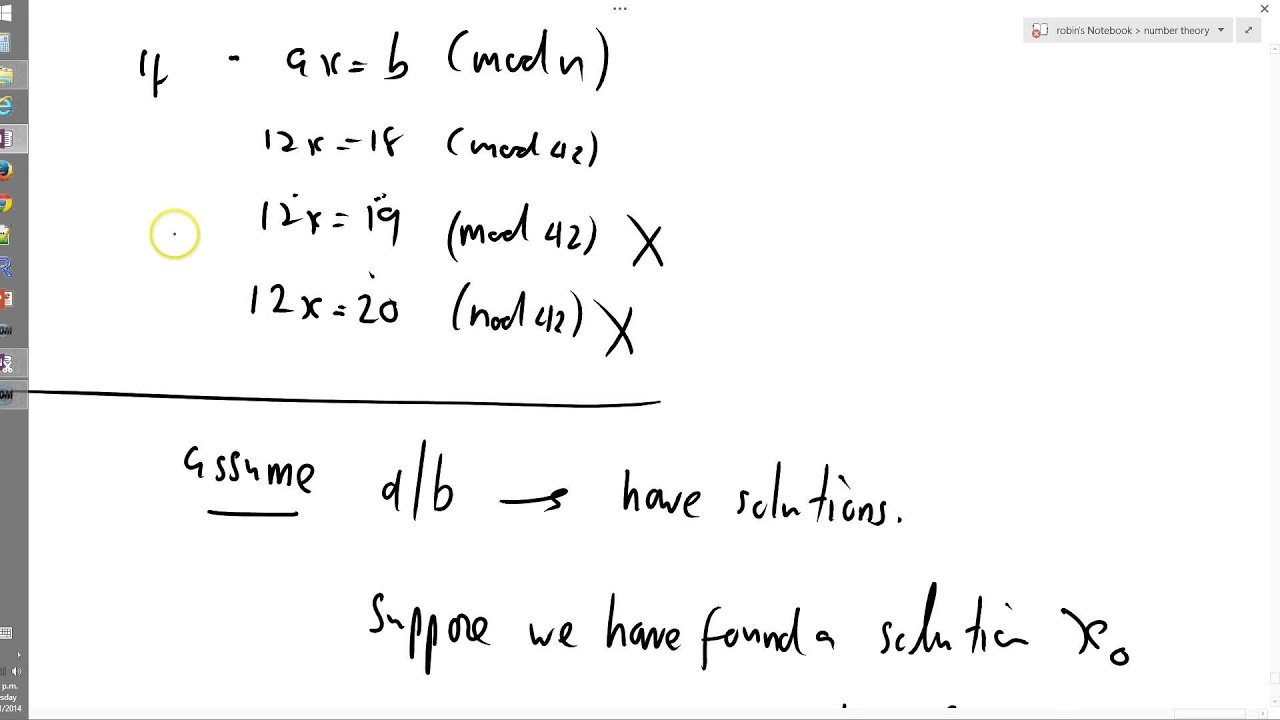 robin's Notebook > number theory
If - ax = b (mod n)
12x = 18 (mod 42)
12x = 19 (mod 42) X
12x = 20 (mod 42) X
assume d/b → have solutions.
Suppose we have found a solution x₀
p.m.
sday
/2014